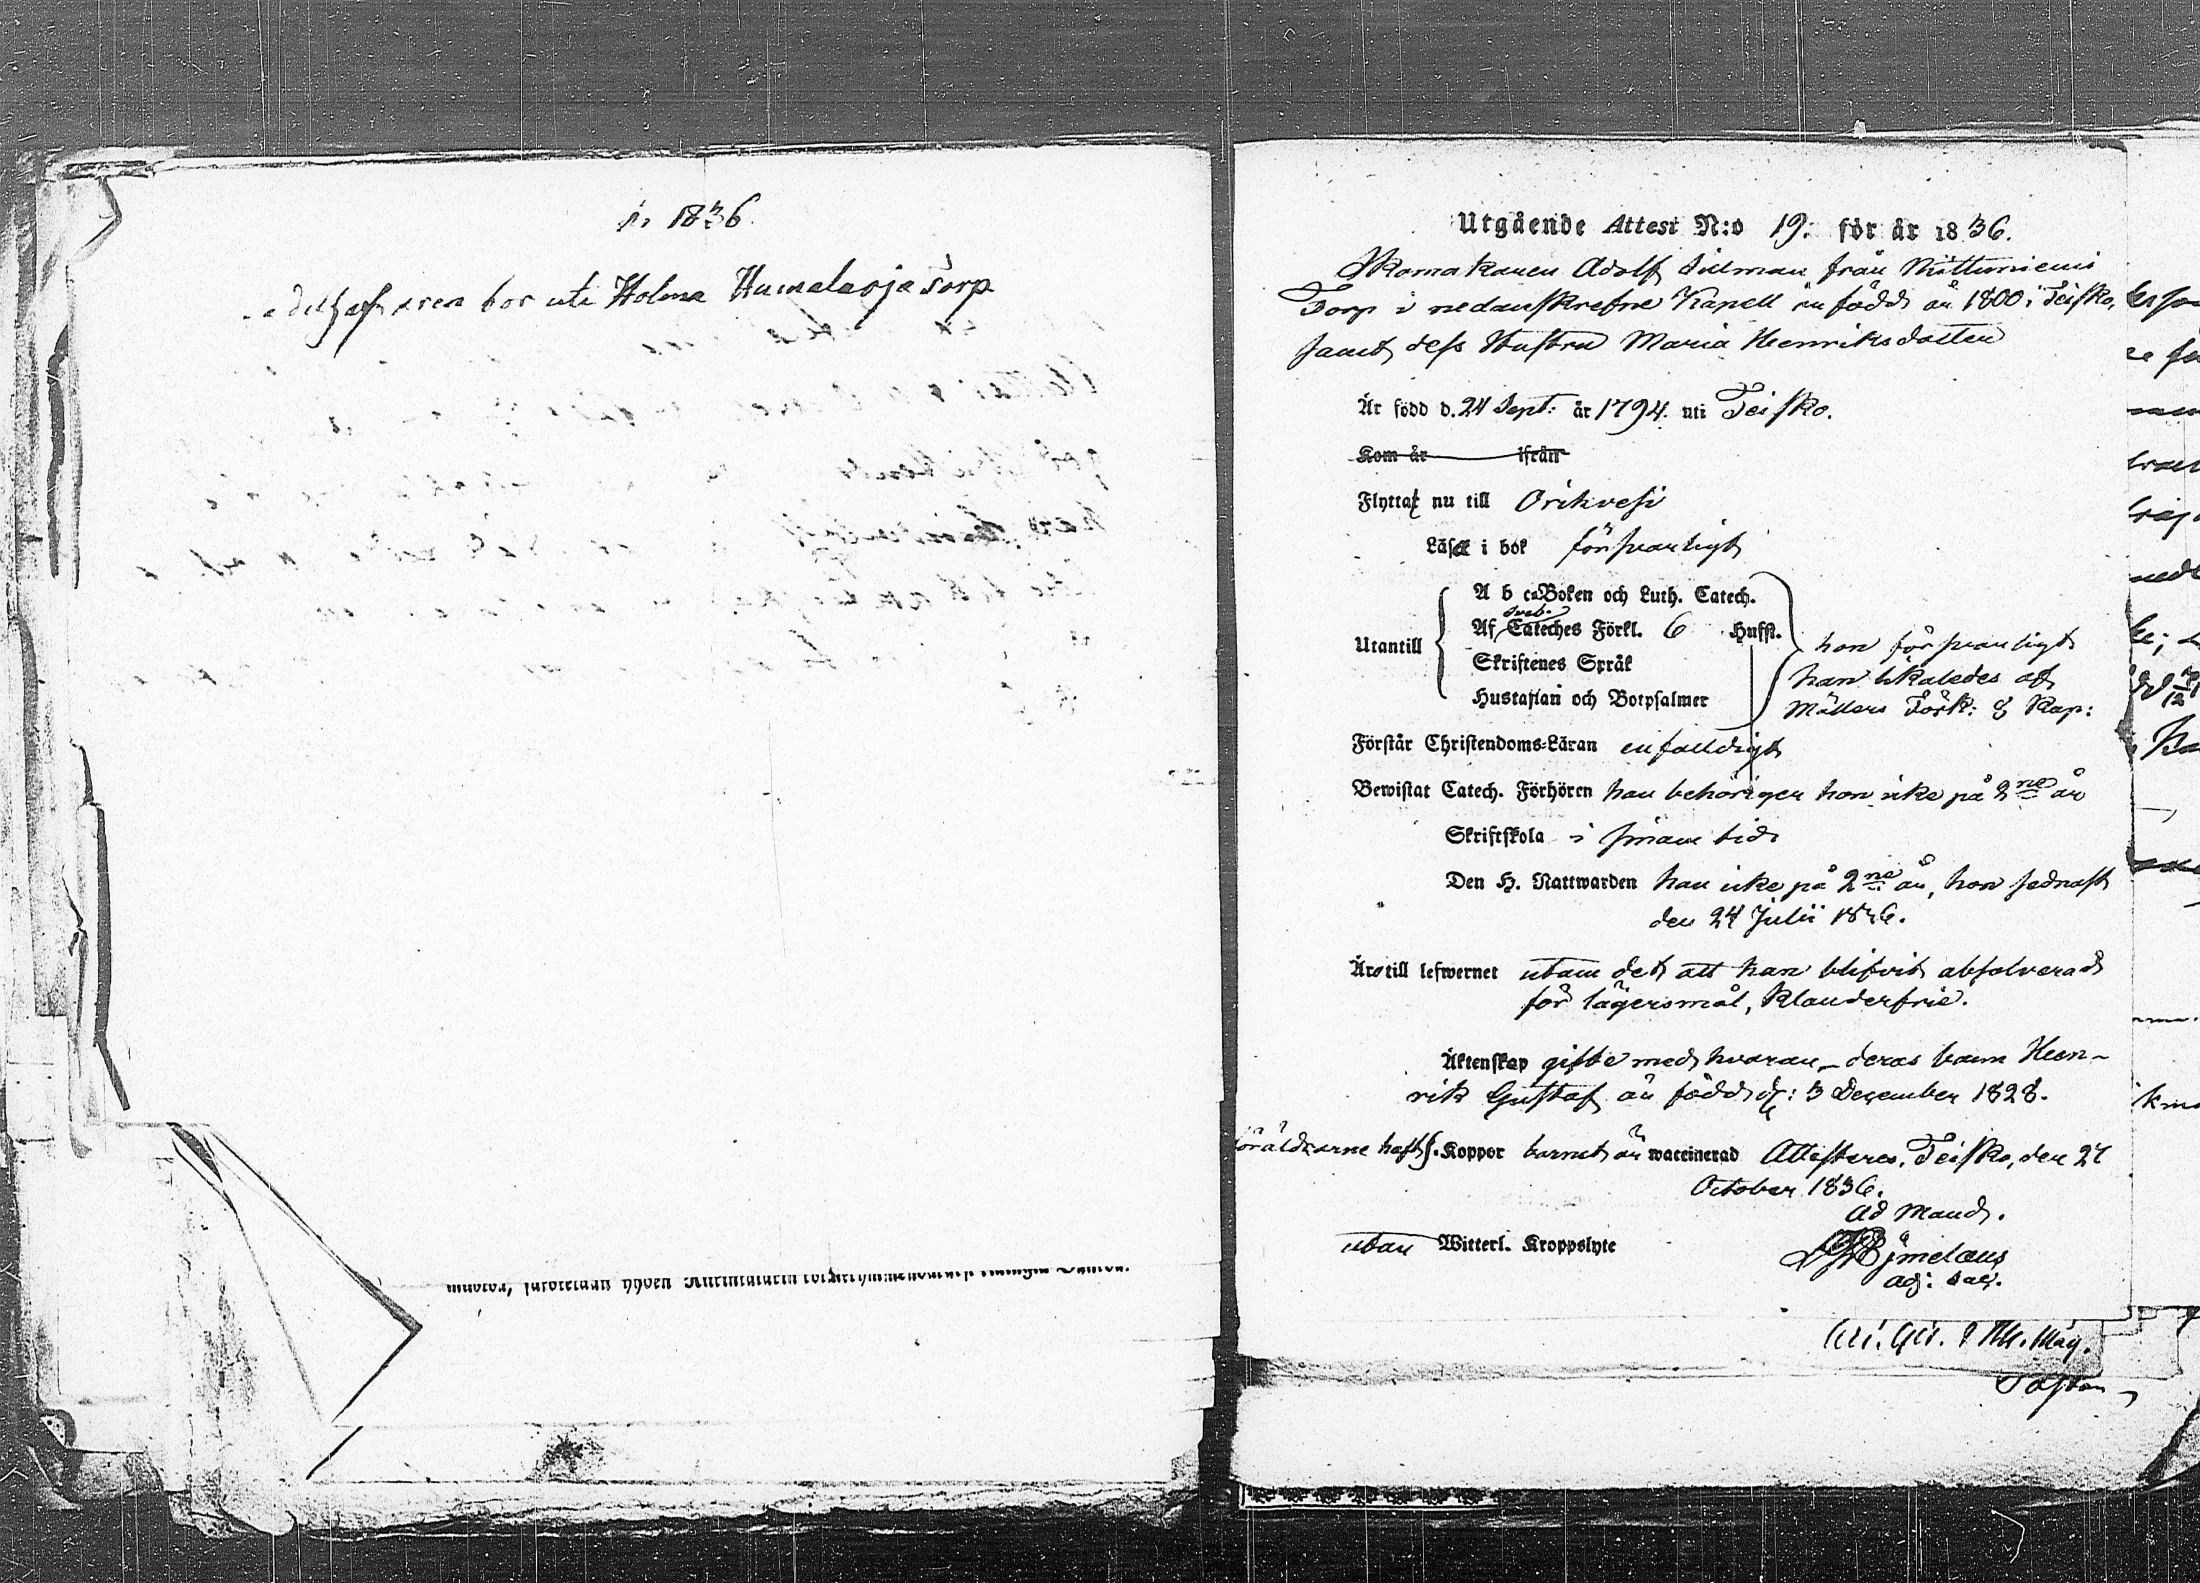 i. 1836.
bor uti Holma Humalaoja Torp
Utgående Attest N:o 19. för år 1836.
Skomakaren Adolf Sillman från Mittuniemi
Torp i nedanskrefne Kapell är född år 1800 i Teisko,
samt dess Hustru Maria Henriksdotter
Är född d. 24 Sept: år 1794. uti Teisko.
Kom år ifrån
Flytta nu till Orihvesi
Läsa i bok försvarligt
A b c-Boken och Luth. Catech.
Utantill Af Sveb. Cateches Förkl. 6 Hufst.
Skriftenes Språk
Hustaflan och Botpsalmer
hon försvarligt
han likaledes af
Möllers Förk: 8 Kap:
Förstår Christendoms-Läran enfalldigt
Bewistat Catech. Förhören han behörigen hon icke på 2ne år
Skriftskola i sinom tid
Den H. Nattwarden han icke på 2ne år, hon sednast
den 24 Julii 1836.
Äro till lefwernet utom det att han blifvit absolverad
för lägersmål, klanderfrie.
Äktenskap gifte med hvaran_ deras barn Hen-
rik Gustaf är född d: 3 December 1828.
föräldrarne haft s. Koppor barnet är waccinerad Attesteras, Teisko, den 27
October 1836.
Ad Mand.
utan Witterl. Kroppslyte
adj: sac.